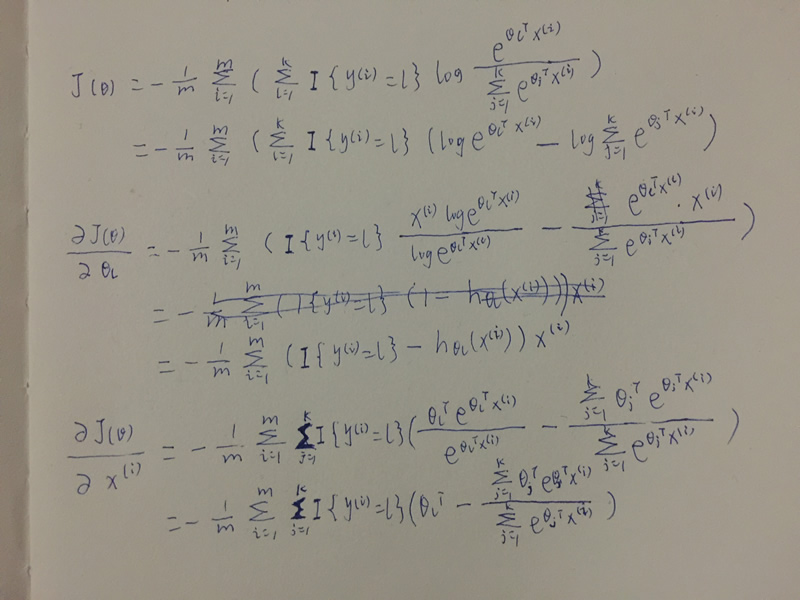 J(θ) = - 1/m ∑_{i=1}^{m} ( ∑_{l=1}^{k} I{y^{(i)}=l} log e^{θ_l^T x^{(i)}} / ∑_{j=1}^{k} e^{θ_j^T x^{(i)}} )
= - 1/m ∑_{i=1}^{m} ( ∑_{l=1}^{k} I{y^{(i)}=l} (log e^{θ_l^T x^{(i)}} - log ∑_{j=1}^{k} e^{θ_j^T x^{(i)}} )
∂J(θ)/∂θ_l = - 1/m ∑_{i=1}^{m} ( I{y^{(i)}=l} x^{(i)} log e^{θ_l^T x^{(i)}} / log e^{θ_l^T x^{(i)}} - e^{θ_l^T x^{(i)}} · x^{(i)} / ∑_{j=1}^{k} e^{θ_j^T x^{(i)}} )
= - 1/m ∑_{i=1}^{m} (1{y^{(i)}=l} (1 - h_{θ_l}(x^{(i)})) x^{(i)}
= - 1/m ∑_{i=1}^{m} (I{y^{(i)}=l} - h_{θ_l}(x^{(i)})) x^{(i)}
∂J(θ)/∂x^{(i)} = - 1/m ∑_{i=1}^{m} ∑_{j=1}^{k} I{y^{(i)}=l} ( θ_l^T e^{θ_l^T x^{(i)}} / e^{θ_l^T x^{(i)}} - ∑_{j=1}^{k} θ_j^T e^{θ_j^T x^{(i)}} / ∑_{j=1}^{k} e^{θ_j^T x^{(i)}} )
= - 1/m ∑_{i=1}^{m} ∑_{j=1}^{k} I{y^{(i)}=l} (θ_l^T - ∑_{j=1}^{k} θ_j^T e^{θ_j^T x^{(i)}} / ∑_{j=1}^{k} e^{θ_j^T x^{(i)}} )